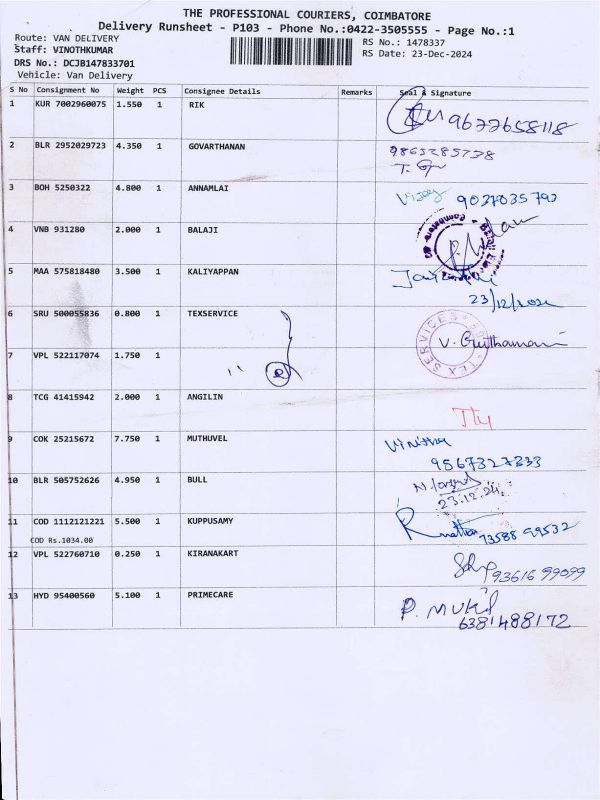 THE PROFESSIONAL COURIERS, COIMBATORE
Delivery Runsheet - P103 - Phone No.:0422-3505555 - Page No.:1
Route: VAN DELIVERY RS No.: 1478337
Staff: VINOTHKUMAR RS Date: 23-Dec-2024
DRS No.: DCJB147833701
Vehicle: Van Delivery
S No Consignment No Weight PCS Consignee Details Remarks Seal & Signature
1 KUR 7002960075 1.550 1 RIK 9677658118
2 BLR 2952029723 4.350 1 GOVARTHANAN 9865285738
3 BOH 5250322 4.800 1 ANNAMLAI Vijay 9037035793
4 VNB 931280 2.000 1 BALAJI
5 MAA 575818480 3.500 1 KALIYAPPAN
23/12/2024
6 SRU 500055836 0.800 1 TEXSERVICE TEX SERVICES
7 VPL 522117074 1.750 1 " 2
8 TCG 41415942 2.000 1 ANGILIN
9 COK 25215672 7.750 1 MUTHUVEL Vinitha
9567327333
10 BLR 505752626 4.950 1 BULL
23.12.24
11 COD 1112121221 5.500 1 KUPPUSAMY 73588 99532
COD Rs.1034.00
12 VPL 522760710 0.250 1 KIRANAKART 93616 99099
13 HYD 95400560 5.100 1 PRIMECARE P. Mukil
6381488172